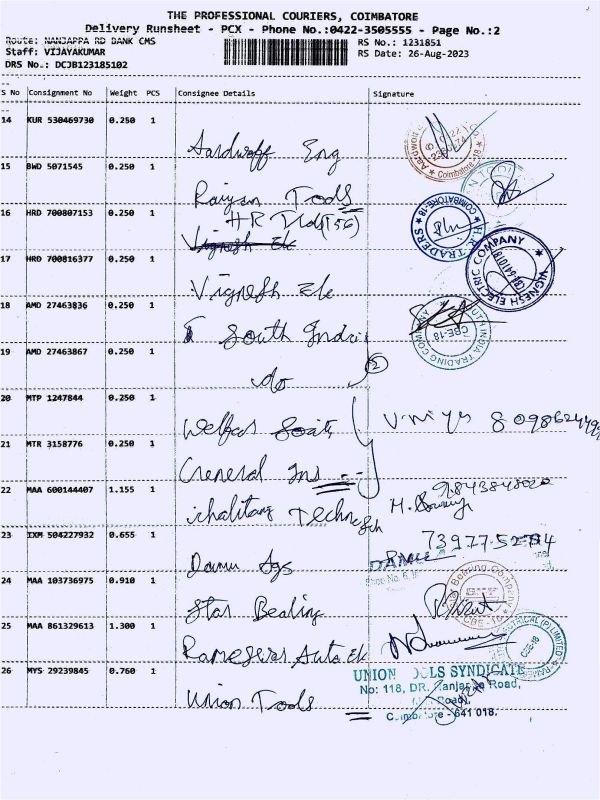 THE PROFESSIONAL COURIERS, COIMBATORE
Delivery Runsheet - PCX - Phone No.:0422-3505555 - Page No.:2
Route: NANJAPPA RD BANK CMS RS No.: 1231851
Staff: VIJAYAKUMAR RS Date: 26-Aug-2023
DRS No.: DCJB123185102
S No Consignment No Weight PCS Consignee Details Signature
14 KUR 530469730 0.250 1
Eng
Coimbatore-18
15 BWD 5071545 0.250 1
Raiyan Tools
16 HRD 700807153 0.250 1
HR Tds (T56)
Vignesh Ele
H.R. TRADERS COIMBATORE-18
17 HRD 700816377 0.250 1
Vignesh Ele
VIGNESH ELECTRIC COMPANY
18 AMD 27463836 0.250 1
South India
SOUTH INDIA TRADING COMPANY CBE-18
19 AMD 27463867 0.250 1
do (2)
20 MTP 1247844 0.250 1
21 MTR 3158776 0.250 1
General Ins
22 MAA 600144407 1.155 1
9843848020
23 IXM 504227932 0.655 1
Damu Ags
24 MAA 103736975 0.910 1
Star Beating
25 MAA 861329613 1.300 1
Rameswar Auto Ele
CBE-18
26 MYS 29239845 0.760 1
Union Tools
UNION TOOLS SYNDICATE
No: 118, DR. Nanjappa Road,
Coimbatore - 641 018.